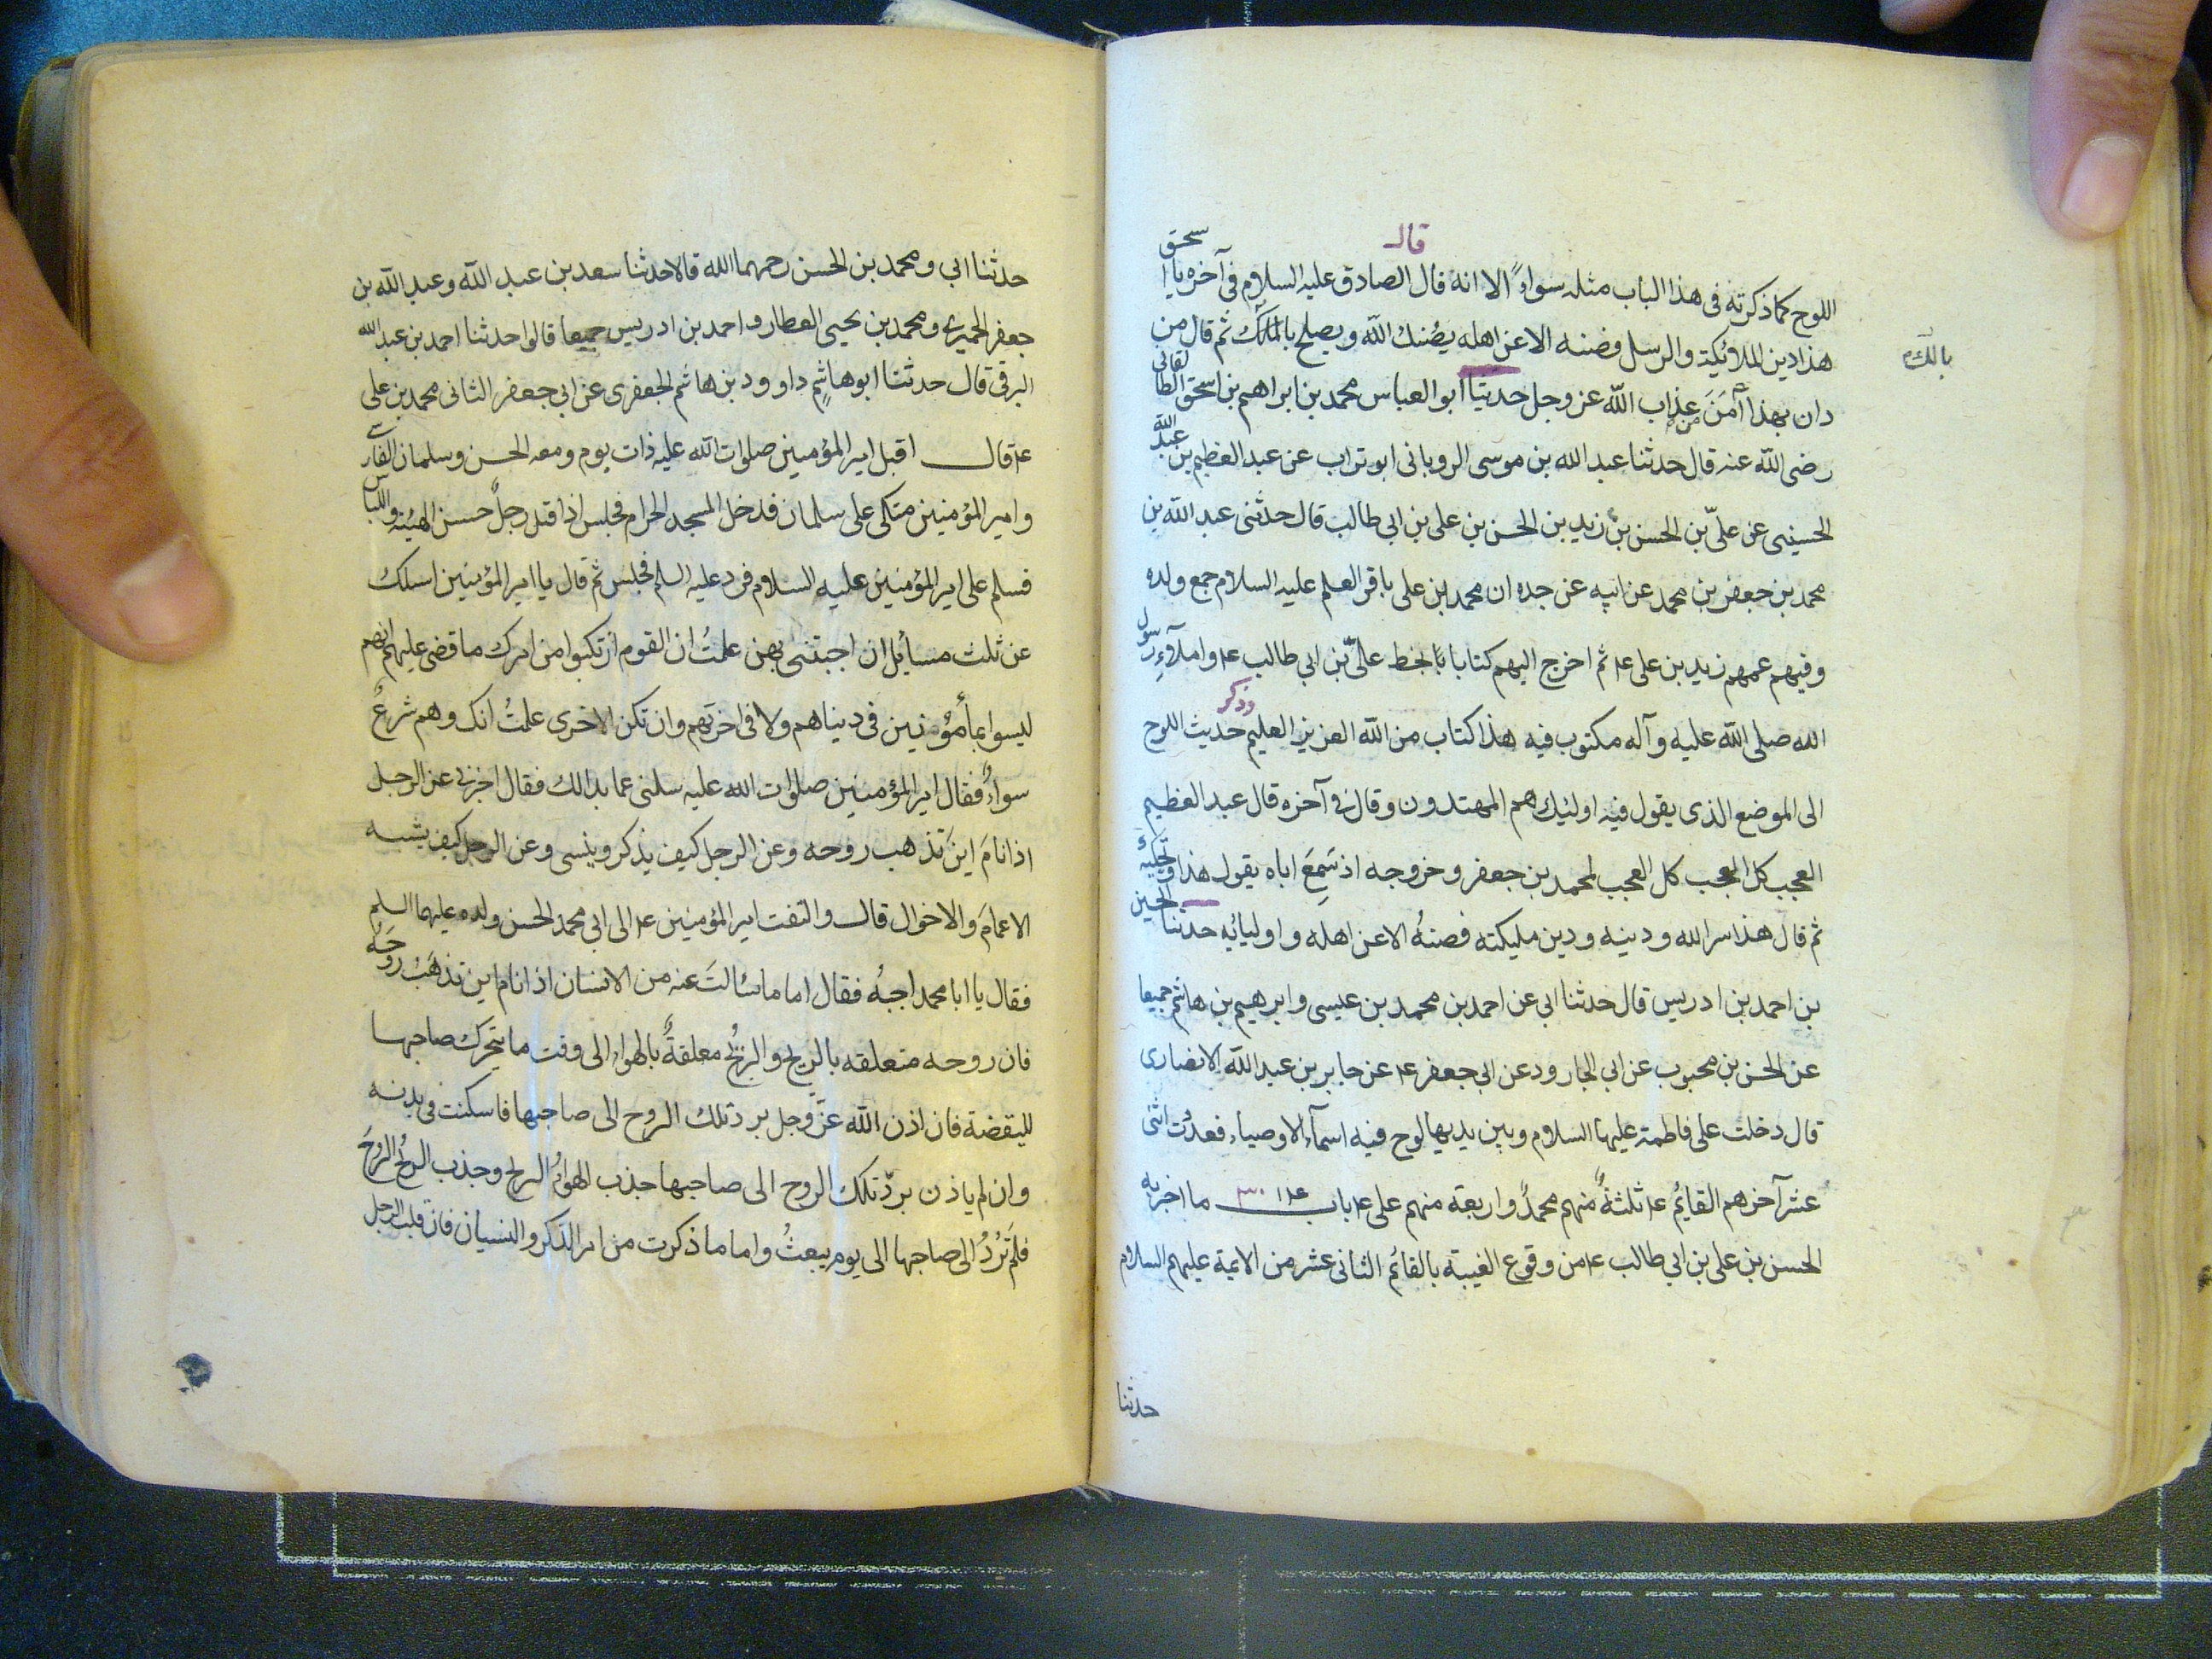 اللوح كما ذكرته فى هذا الباب مثله سواءً الا انه قال الصادق عليه السلام فى آخره يا اسحق
قال
هذا دين الملائكة والرسل فصنه الا عن اهله يصُنك الله ويصلح بالك ثم قال من
بالك
دان بهذا آمَنَ من عذاب الله عز وجل حدثنا ابو العباس محمد بن ابراهيم بن اسحق الطالقانى
رضى الله عنه قال حدثنا عبد الله بن موسى الرويانى ابو تراب عن عبد العظيم بن عبد الله
الحسينى عن علىّ بن الحسن بن زيد بن الحسن بن على بن ابي طالب قال حدثنى عبد الله بن
محمد بن جعفر بن محمد عن ابيه عن جده ان محمد بن على باقر العلم عليه السلام جمع ولده
وفيهم عمهم زيد بن على ع ثم اخرج اليهم كتابا بخط علىّ بن ابي طالب ع واملآءِ رسول
الله صلى الله عليه وآله مكتوب فيه هذا كتاب من الله العزيز العليم حديث اللوح
وذكر
الى الموضع الذى يقول فيه اوليك هم المهتدون وقال فى آخره قال عبد العظيم
العجب كل العجب كل العجب لمحمد بن جعفر وخروجه اذ سَمِعَ اباه يقول هذا ويحكيه
ثم قال هذا سر الله ودينه ودين مليكته فصنهُ الا عن اهله واوليائه حدثنا الحسين
بن احمد بن ادريس قال حدثنا ابي عن احمد بن محمد بن عيسى وابرهيم بن هاشم جميعا
عن الحسن بن محبوب عن ابي الجارود عن ابي جعفر ع عن جابر بن عبد الله الانصارى
قال دخلت على فاطمة عليها السلام وبين يديها لوح فيه اسمآء الاوصياء فعددُت اثنى
عشر آخرهم القايُم ع ثلثةً منهم محمدً واربعة منهم على ع باب ما اخبر به
الحسن بن على بن ابي طالب ع من وقوع الغيبة بالقائم الثانى عشر من الايمة عليهم السلام
حدثنا
حدثنا ابي ومحمد بن الحسن رحمهما الله قالا حدثنا سعد بن عبد الله وعبد الله بن
جعفر الحميرى ومحمد بن يحيى العطار واحمد بن ادريس جميعا قالوا حدثنا احمد بن عبد الله
البرقى قال حدثنا ابو هاشم داوود بن هاشم الجعفرى عن ابي جعفر الثانى محمد بن على
ع قال اقبل امير المؤمنين صلوات الله عليه ذات يوم ومعه الحسن وسلمان الفارسى
وامير المؤمنين متكى على سلمان فدخل المسجد الحرام فجلس اذا قبل رجلٌ حسن الهيئة واللباس
فسلم على امير المؤمنين عليه السلام فرد عليه السلم فجلس ثم قال يا امير المؤمنين اسلك
عن ثلث مسائل ان اجبتنى بهن علمتُ ان القوم ارتكبوا من امرك ما قضى عليهم انهم
ليسوا بمأمؤنين فى دنياهم ولا فى اخرتهم وان تكن الاخرى علمتُ انك وهم شرعٌ
سواءٌ فقال امير المؤمنين صلوات الله عليه سلنى عما بدالك فقال اخبرنى عن الرجل
اذا نامَ اينَ تذهب روحه وعن الرجل كيف يذكر وينسى وعن الرجل كيف يشبه
الاعمامَ والاخوال قال والتفت امير المؤمنين ع الى ابي محمد الحسن ولده عليهما السلم
فقال يا ابا محمد اجبهُ فقال اما ما سئالتَ عنه من الانسان اذا نام اين تذهَبُ روحَهُ
فان روحه متعلقه بالريح والريحُ معلقةٌ بالهواء الى وقت ما يتحرك صاحبها
لليقضة فان اذن الله عزّ وجل برد تلك الروح الى صاحبها فاسكنت فى بدنه
وان لم ياذن بردّ تلك الروح الى صاحبها جذب الهواءُ الريح وجذب الريحُ الروحَ
فلم تَرُدُ الى صاحبها الى يوم يبعثُ واما ما ذكرت من امر الذكر والنسيان فان قلب الرجل